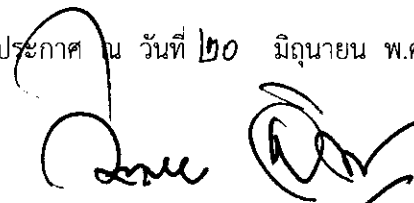 ประกาศ ณ วันที่ ๒๐ มิถุนายน พ.ศ